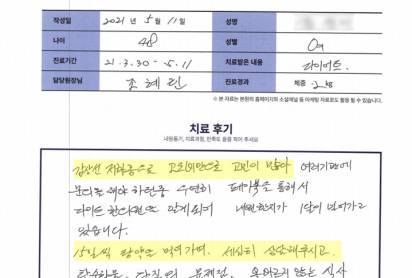 작성일 2021년 5월 11일 성명
나이 48 성별 여
진료기간 21.3.30-5.11 치료받은 내용 다이어트.
담당원장님 조혜린 진료경과 체중 2kg
※ 본 자료는 본원의 홈페이지와 소셜채널 등 마케팅 자료로도 활용 될 수 있습니다.
치료 후기
내원동기, 치료과정, 만족도 등을 적어 주세요
갑상선 저하증으로 고도비만으로 고민이 많아 여러기관에
문의를 해야 하던중 우연히 페이북을 통해서
다이트 한다는걸 알게되어 내원한지가 1달이 넘어가고
있습니다.
15일씩 한약도 먹어가며. 세심히 상담해주시고.